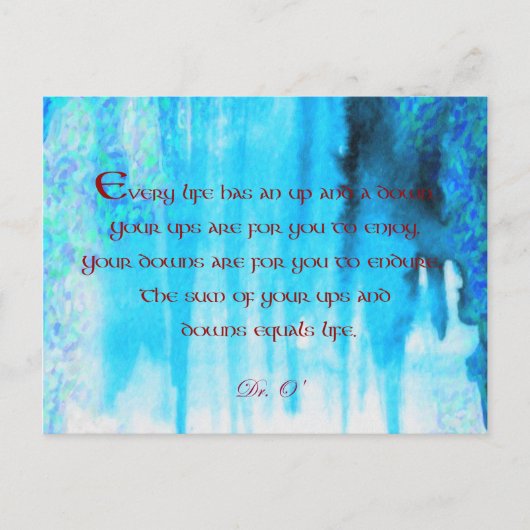 Every life has an up and a down.
Your ups are for you to enjoy,
Your downs are for you to endure.
The sum of your ups and
downs equals life.
Dr. O'